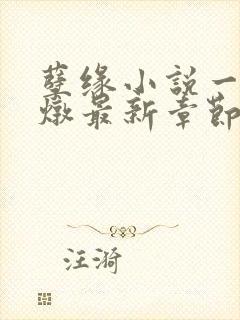 孽缘小説一
燉最新章節
汪漪